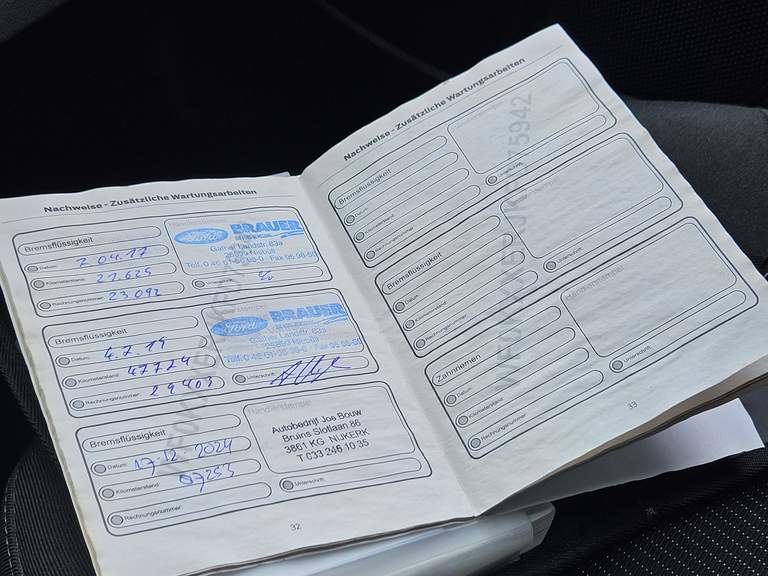 Nachweise - Zusätzliche Wartungsarbeiten
Bremsflüssigkeit
Datum: 7 04.17
Kilometerstand: 21.625
Rechnungsnummer: 23.092
Händlerstempel
Ford BRAUER
Gather Landstr. 83a
Unterschrift:
Bremsflüssigkeit
Datum: 4.7.19
Kilometerstand: 47724
Rechnungsnummer: 29403
Ford BRAUER
Gather Landstr. 83a
Unterschrift:
Bremsflüssigkeit
Datum: 17-12-2024
Kilometerstand: 97253
Rechnungsnummer:
Händlerstempel
Autobedrijf Joe Bouw
Bruins Slotlaan 86
3861 KG NIJKERK
T 033 246 10 35
Unterschrift:
32
Nachweise - Zusätzliche Wartungsarbeiten
Bremsflüssigkeit
Datum:
Kilometerstand:
Rechnungsnummer:
Unterschrift:
Bremsflüssigkeit
Datum:
Kilometerstand:
Rechnungsnummer:
Unterschrift:
Zahnriemen
Datum:
Kilometerstand:
Rechnungsnummer:
Händlerstempel
Unterschrift:
33